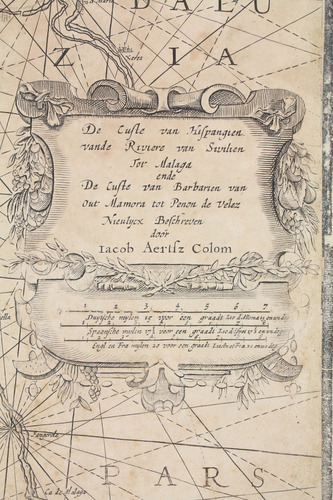 DALU
Xeres
ZIA
De Custe van Hispangien
vande Riviere van Sivilien
Tot Malaga
ende
De Custe van Barbarien van
out Mamora tot Penon de Velez
Nieulycx Beschreven
door
Iacob Aertsz Colom
1 2 3 4 5 6 7
Duytsche mylen 15 voor een graadt
Spaensche mylen 17½ voor een graadt
Engl en Fra mylen 20 voor een graadt
PARS
Ca de Malaga